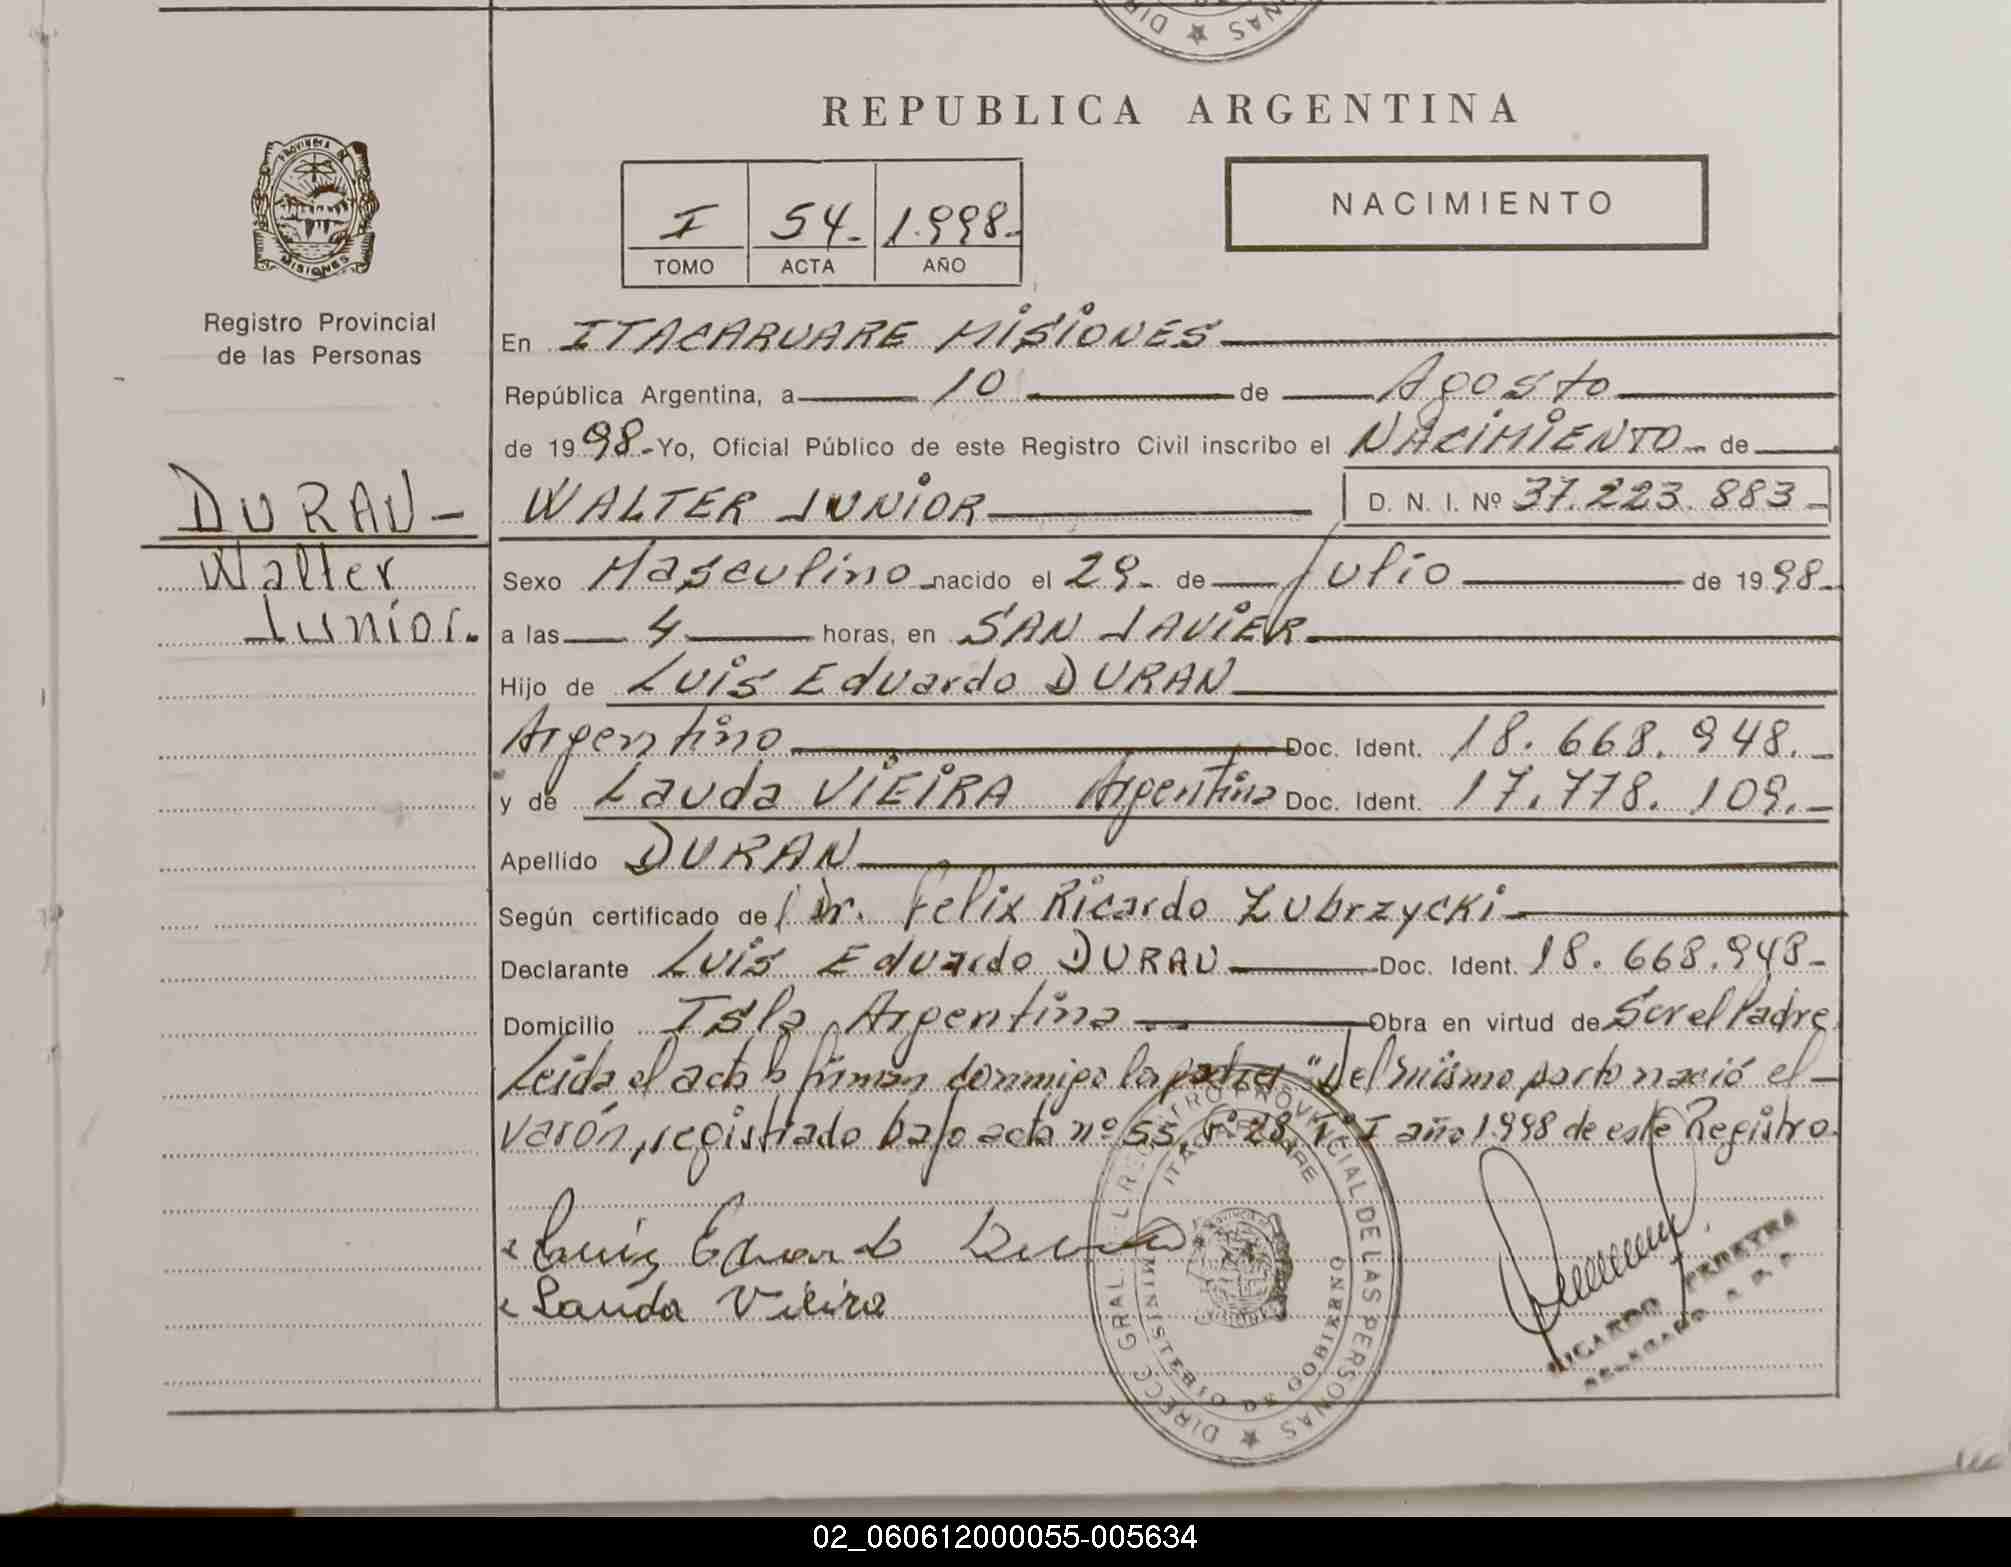 REPUBLICA ARGENTINA
NACIMIENTO
I 54- 1.998-
TOMO ACTA AÑO
PROVINCIA DE
MISIONES
Registro Provincial
de las Personas
En ITACARUARE MISIONES
República Argentina, a 10 de Agosto
de 1998- Yo, Oficial Público de este Registro Civil inscribo el NACIMIENTO- de
DURAN-
WALTER JUNIOR D. N. I. Nº 37.223.883-
Walter
Junior.
Sexo Masculino nacido el 29- de Julio de 1998-
a las 4 horas, en SAN JAVIER
Hijo de Luis Eduardo DURAN
Argentino Doc. Ident. 18.668.948.-
y de Lauda VIEIRA Argentina Doc. Ident. 17.778.109.-
Apellido DURAN
Según certificado de Dr. Felix Ricardo Zubrzycki
Declarante Luis Eduardo DURAN Doc. Ident. 18.668.948-
Domicilio Isla Argentina Obra en virtud de Ser el Padre
Leida el acta la firman conmigo los padres "Del mismo parto nació el
varón, registrado bajo acta nº 55, Fº 28, Tº I año 1998 de este Registro.
Luis Eduardo Duran
Lauda Vieira
DIRECC GRAL DEL REGISTRO PROVINCIAL DE LAS PERSONAS
ITACARUARE
MINISTERIO DE GOBIERNO
RICARDO PEREYRA
DELEGADO
02_060612000055-005634